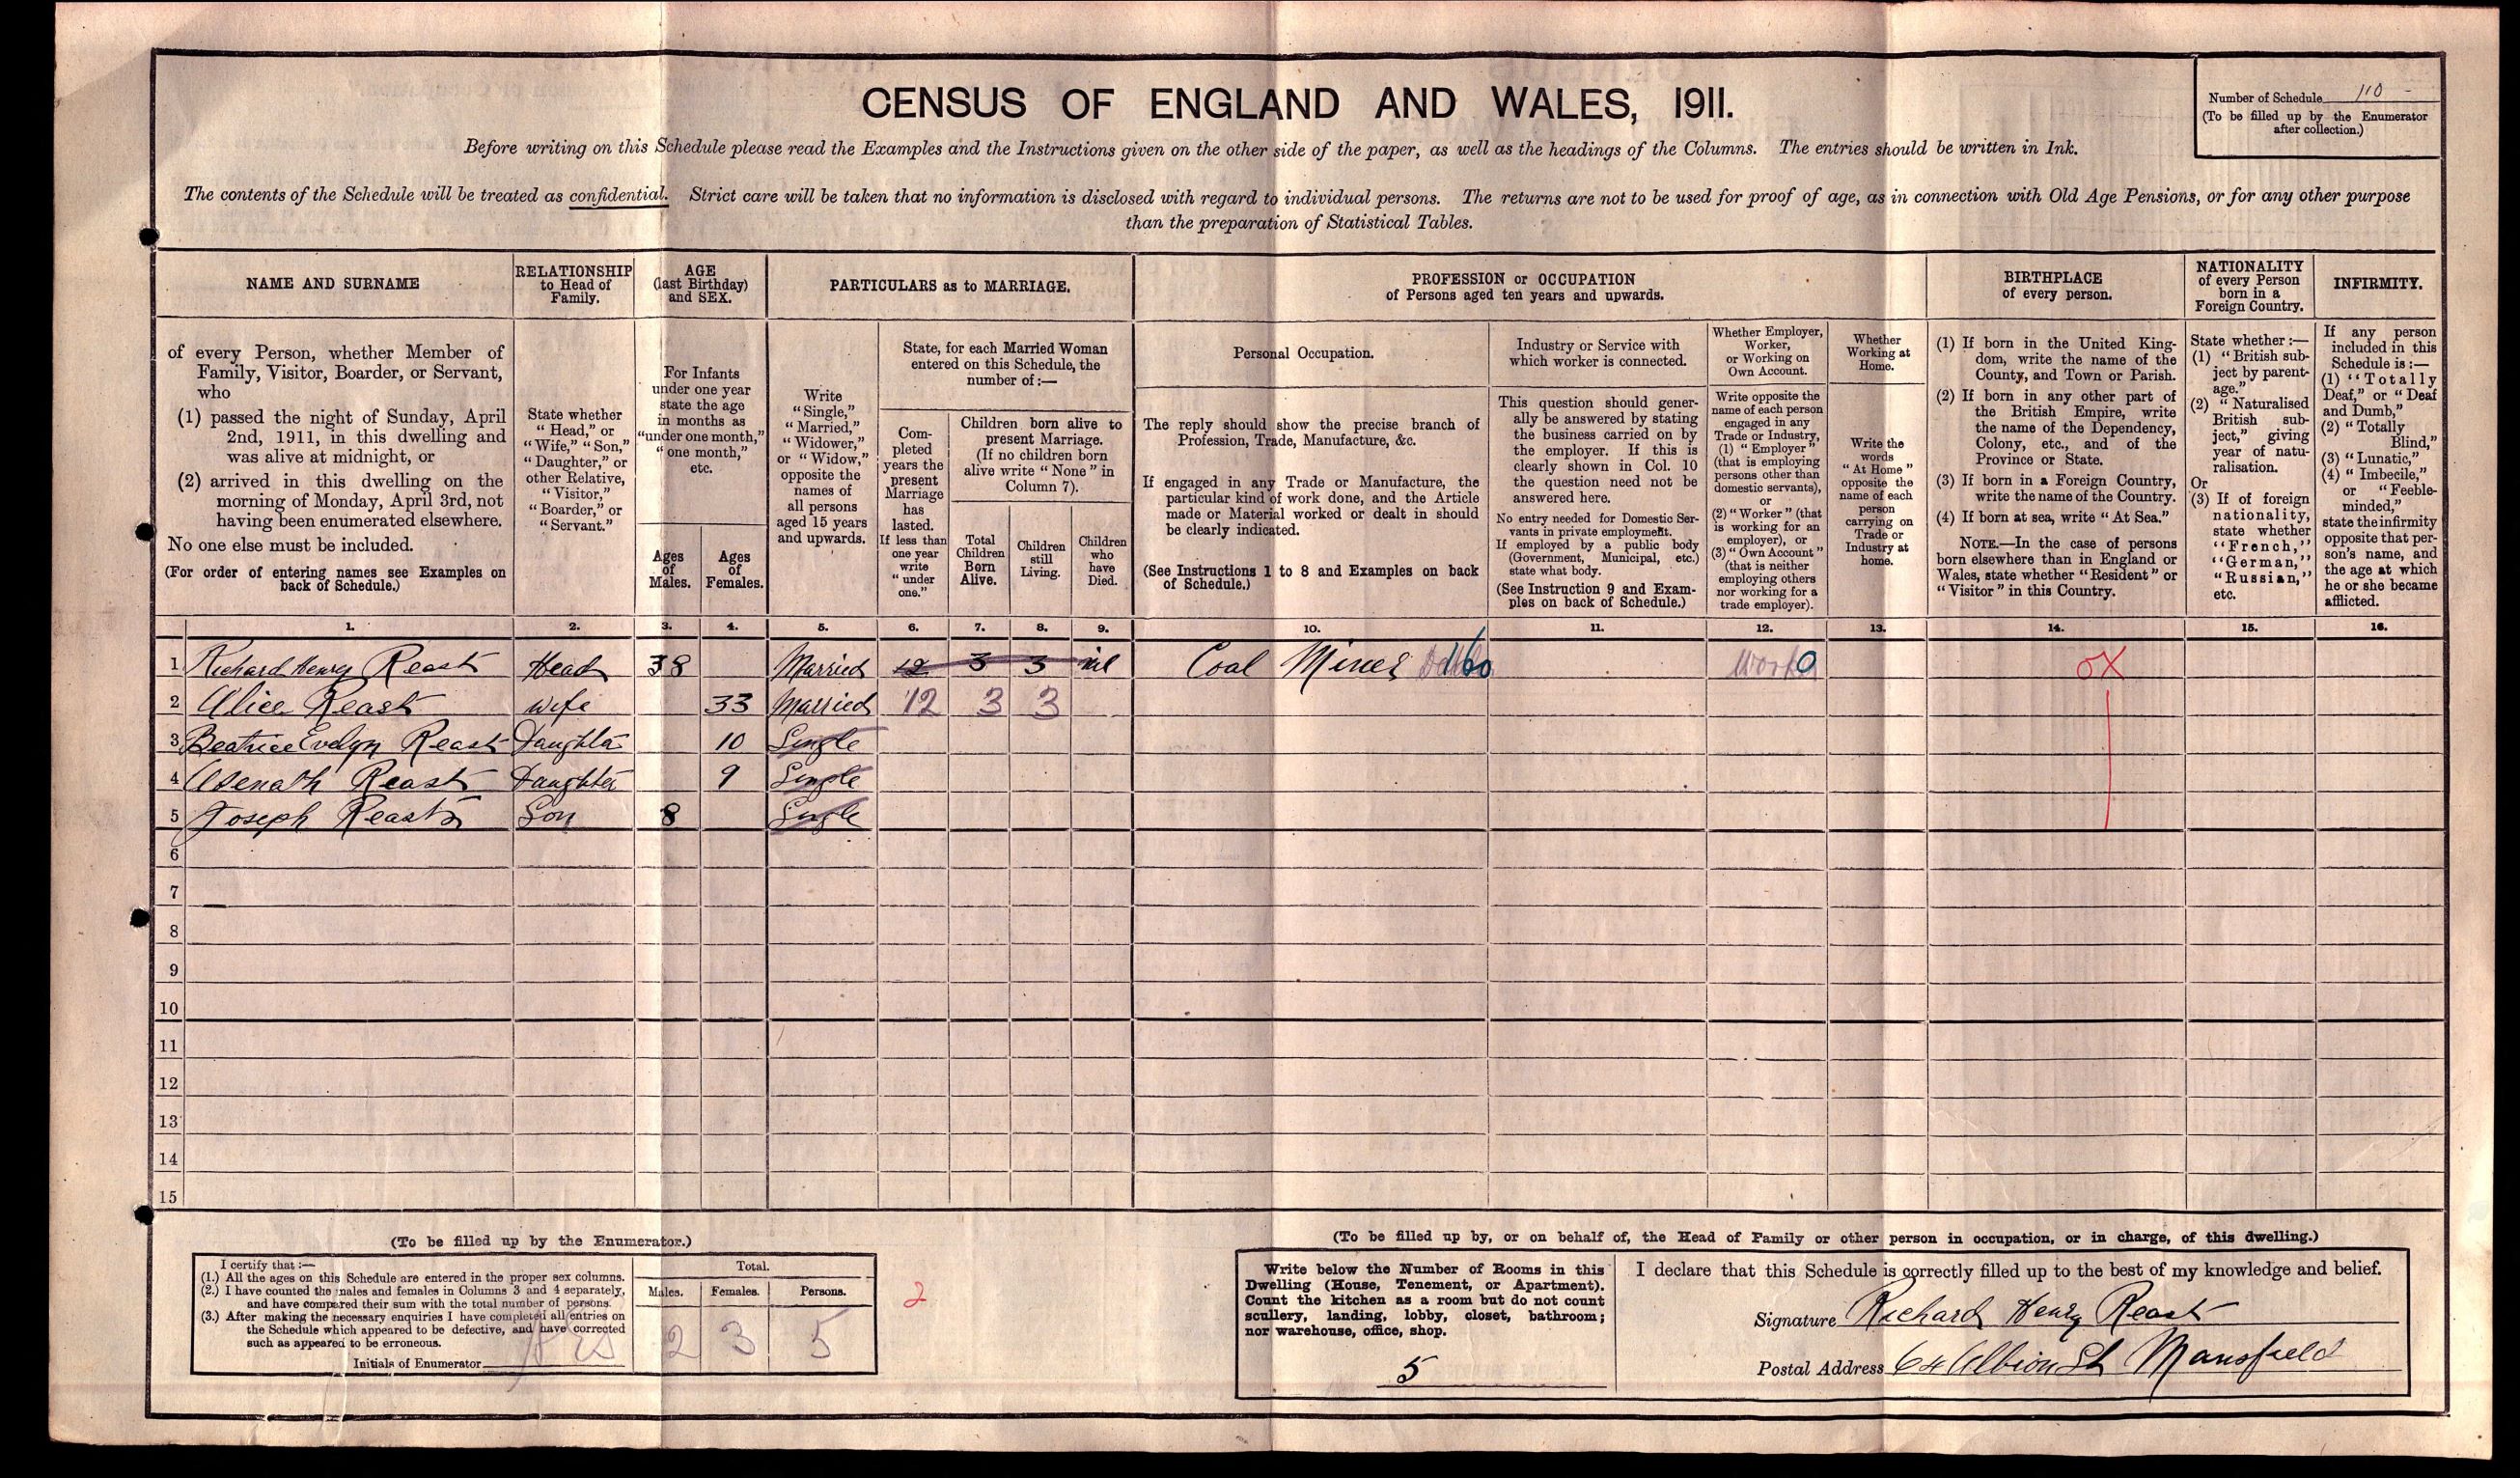 CENSUS OF ENGLAND AND WALES, 1911.
Number of Schedule 110
(To be filled up by the Enumerator
after collection.)
Before writing on this Schedule please read the Examples and the Instructions given on the other side of the paper, as well as the headings of the Columns. The entries should be written in Ink.
The contents of the Schedule will be treated as confidential. Strict care will be taken that no information is disclosed with regard to individual persons. The returns are not to be used for proof of age, as in connection with Old Age Pensions, or for any other purpose
than the preparation of Statistical Tables.
NAME AND SURNAME
of every Person, whether Member of
Family, Visitor, Boarder, or Servant,
who
(1) passed the night of Sunday, April
2nd, 1911, in this dwelling and
was alive at midnight, or
(2) arrived in this dwelling on the
morning of Monday, April 3rd, not
having been enumerated elsewhere.
No one else must be included.
(For order of entering names see Examples on
back of Schedule.)
RELATIONSHIP
to Head of
Family.
State whether
"Head," or
"Wife," "Son,"
"Daughter," or
other Relative,
"Visitor,"
"Boarder," or
"Servant."
AGE
(last Birthday)
and SEX.
For Infants
under one year
state the age
in months as
"under one month,"
"one month,"
etc.
Ages
of
Males.
Ages
of
Females.
PARTICULARS as to MARRIAGE.
Write
"Single,"
"Married,"
"Widower,"
or "Widow,"
opposite the
names of
all persons
aged 15 years
and upwards.
State, for each Married Woman
entered on this Schedule, the
number of :—
Com-
pleted
years the
present
Marriage
has
lasted.
If less than
one year
write
"under
one."
Children born alive to
present Marriage.
(If no children born
alive write "None" in
Column 7).
Total
Children
Born
Alive.
Children
still
Living.
Children
who
have
Died.
PROFESSION or OCCUPATION
of Persons aged ten years and upwards.
Personal Occupation.
The reply should show the precise branch of
Profession, Trade, Manufacture, &c.
If engaged in any Trade or Manufacture, the
particular kind of work done, and the Article
made or Material worked or dealt in should
be clearly indicated.
(See Instructions 1 to 8 and Examples on back
of Schedule.)
Industry or Service with
which worker is connected.
This question should gener-
ally be answered by stating
the business carried on by
the employer. If this is
clearly shown in Col. 10
the question need not be
answered here.
No entry needed for Domestic Ser-
vants in private employment.
If employed by a public body
(Government, Municipal, etc.)
state what body.
(See Instruction 9 and Exam-
ples on back of Schedule.)
Whether Employer,
Worker,
or Working on
Own Account.
Write opposite the
name of each person
engaged in any
Trade or Industry,
(1) "Employer"
(that is employing
persons other than
domestic servants),
or
(2) "Worker" (that
is working for an
employer), or
(3) "Own Account"
(that is neither
employing others
nor working for a
trade employer).
Whether
Working at
Home.
Write the
words
"At Home"
opposite the
name of each
person
carrying on
Trade or
Industry at
home.
BIRTHPLACE
of every person.
(1) If born in the United King-
dom, write the name of the
County, and Town or Parish.
(2) If born in any other part of
the British Empire, write
the name of the Dependency,
Colony, etc., and of the
Province or State.
(3) If born in a Foreign Country,
write the name of the Country.
(4) If born at sea, write "At Sea."
NOTE.—In the case of persons
born elsewhere than in England or
Wales, state whether "Resident" or
"Visitor" in this Country.
NATIONALITY
of every Person
born in a
Foreign Country.
State whether :—
(1) "British sub-
ject by parent-
age."
(2) "Naturalised
British sub-
ject," giving
year of natu-
ralisation.
Or
(3) If of foreign
nationality,
state whether
"French,"
"German,"
"Russian,"
etc.
INFIRMITY.
If any person
included in this
Schedule is :—
(1) "Totally
Deaf," or "Deaf
and Dumb,"
(2) "Totally
Blind,"
(3) "Lunatic,"
(4) "Imbecile,"
or "Feeble-
minded,"
state the infirmity
opposite that per-
son's name, and
the age at which
he or she became
afflicted.
1. 2. 3. 4. 5. 6. 7. 8. 9. 10. 11. 12. 13. 14. 15. 16.
1 Richard Henry Reast Head 38 Married 12 3 3 nil Coal Miner 160 0 OX
2 Alice Reast Wife 33 Married 12 3 3
3 Beatrice Evelyn Reast Daughter 10 Single
4 Asenath Reast Daughter 9 Single
5 Joseph Reast Son 8 Single
6
7
8
9
10
11
12
13
14
15
(To be filled up by the Enumerator.)
I certify that :—
(1.) All the ages on this Schedule are entered in the proper sex columns.
(2.) I have counted the males and females in Columns 3 and 4 separately,
and have compared their sum with the total number of persons.
(3.) After making the necessary enquiries I have completed all entries on
the Schedule which appeared to be defective, and have corrected
such as appeared to be erroneous.
Initials of Enumerator
Total.
Males. Females. Persons.
2 3 5
2
(To be filled up by, or on behalf of, the Head of Family or other person in occupation, or in charge, of this dwelling.)
Write below the Number of Rooms in this
Dwelling (House, Tenement, or Apartment).
Count the kitchen as a room but do not count
scullery, landing, lobby, closet, bathroom;
nor warehouse, office, shop.
5
I declare that this Schedule is correctly filled up to the best of my knowledge and belief.
Signature Richard Henry Reast
Postal Address 64 Albion St Mansfield